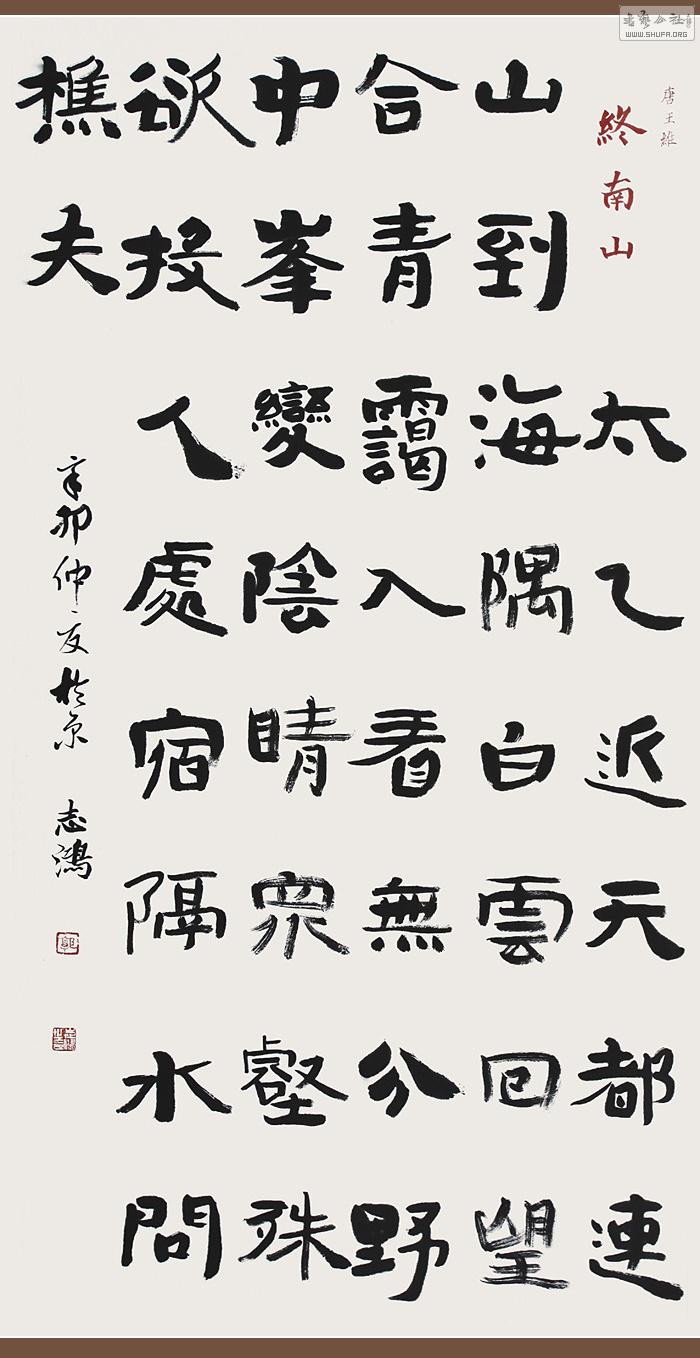 书艺公社
WWW.SHUFA.ORG
唐王維
終南山
太乙近天都連
山到海隅白雲回望
合青靄入看無分野
中峯變陰晴衆壑殊
欲投人處宿隔水問
樵夫
辛卯仲夏於京 志鴻
郭